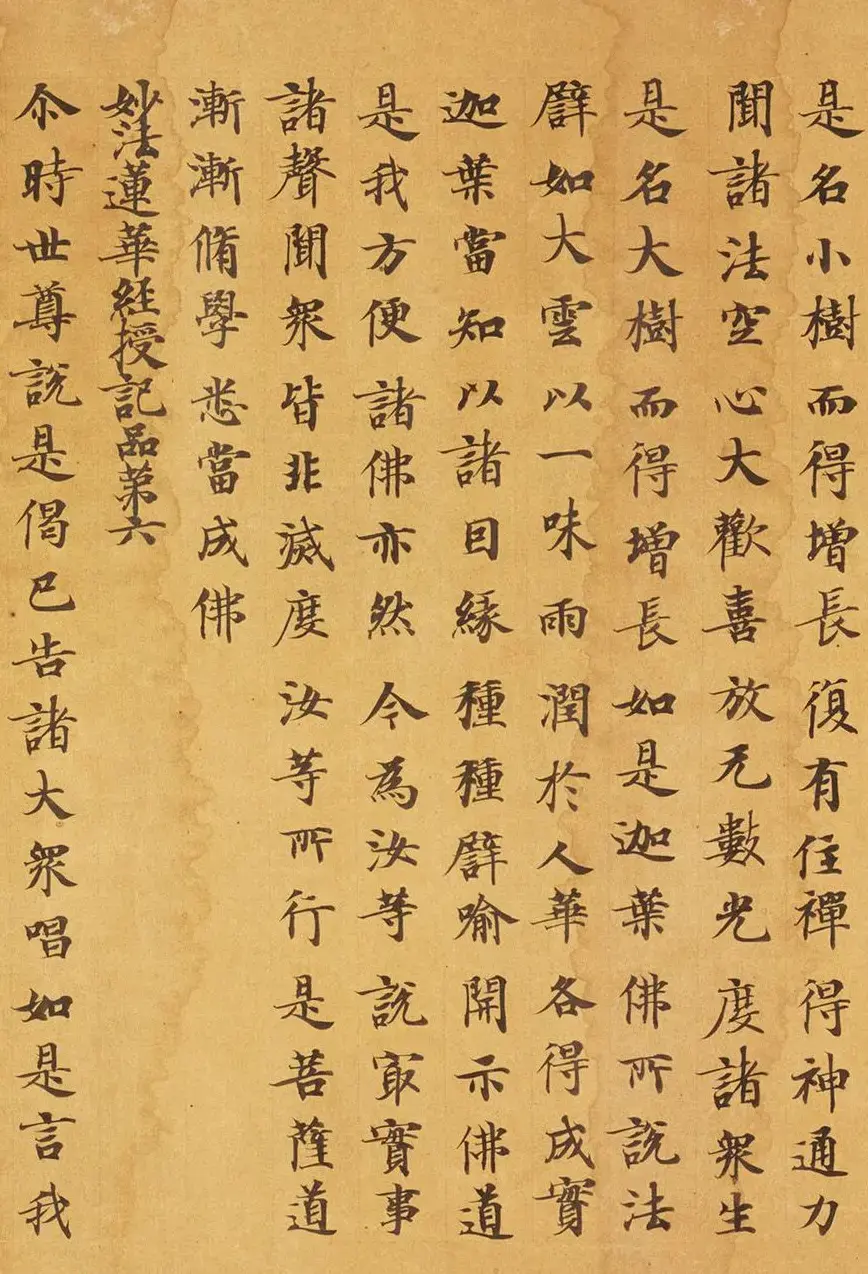 是名小樹而得增長復有住禪得神通力
聞諸法空心大歡喜放无數光度諸衆生
是名大樹而得增長如是迦葉佛所說法
譬如大雲以一味雨潤於人華各得成實
迦葉當知以諸因緣種種譬喻開示佛道
是我方便諸佛亦然今為汝等說冣實事
諸聲聞衆皆非滅度汝等所行是菩薩道
漸漸脩學悉當成佛
妙法蓮華經授記品第六
尒時世尊說是偈已告諸大衆唱如是言我